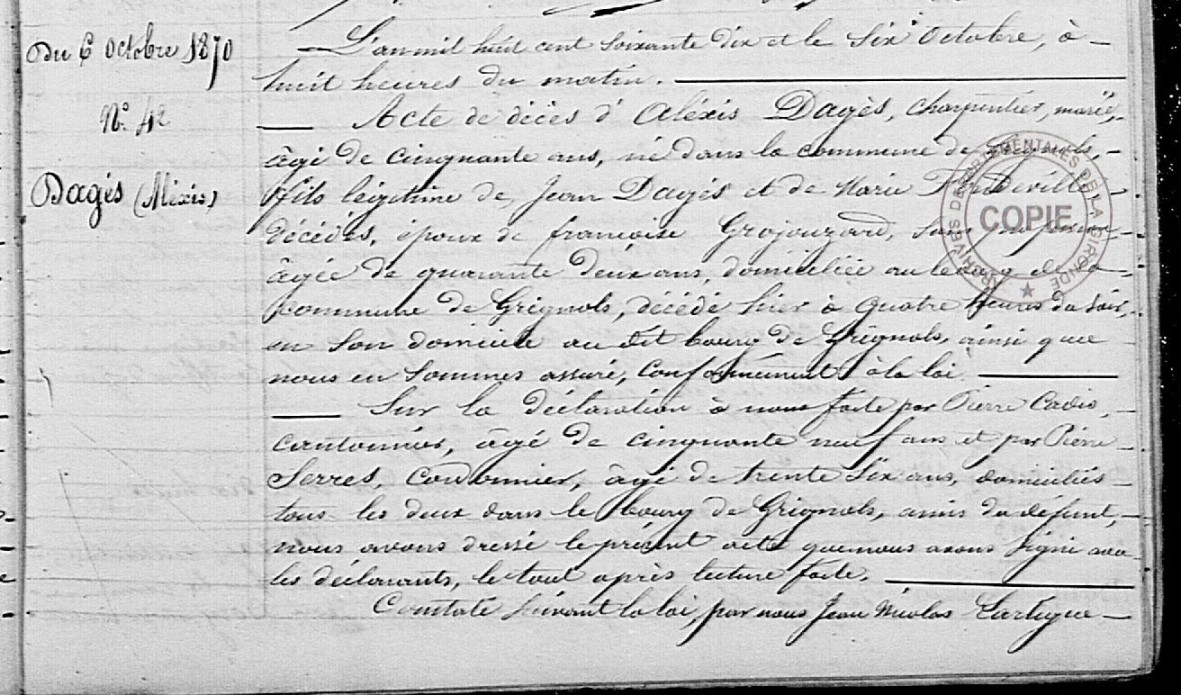 Du 6 Octobre 1870
N° 42
Dagès (Aléxis)
L'an mil huit cent soixante dix et le Six Octobre, à
huit heures du matin.
Acte de décès d'Aléxis Dagès, charpentier, marié,
âgé de cinquante ans, né dans la commune de
fils légitime de Jean Dagès et de Marie
décédés, époux de françoise Grojouzard, sans
âgée de quarante deux ans, domiciliée au bourg de la
commune de Grignols, décédé hier à quatre heures du soir,
en son domicile au dit bourg de Grignols, ainsi que
nous en sommes assuré, conformément à la loi.
Sur la déclaration à nous faite par Pierre Cadis,
cantonnier, âgé de cinquante neuf ans et par Pierre
Serres, cordonnier, âgé de trente Six ans, domiciliés
tous les deux dans le bourg de Grignols, amis du défunt,
nous avons dressé le présent acte que nous avons signé avec
les déclarants, le tout après lecture faite.
Constaté suivant la loi, par nous Jean Nicolas Lartigue
ARCHIVES DEPARTEMENTALES DE LA GIRONDE
COPIE